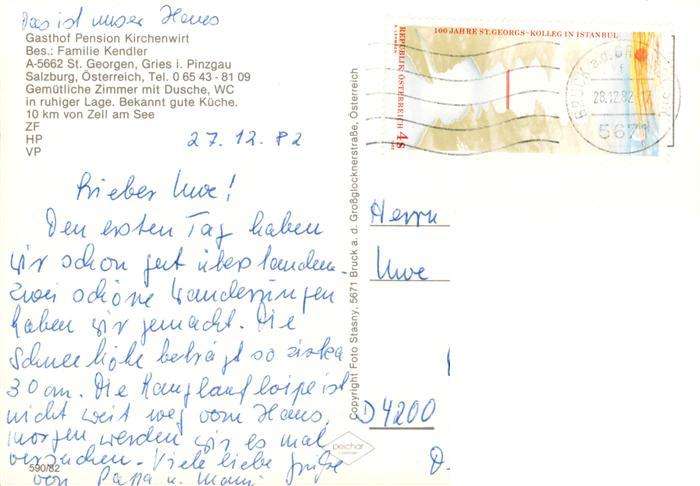 Das ist unser Haus
Gasthof Pension Kirchenwirt
Bes.: Familie Kendler
A-5662 St. Georgen, Gries i. Pinzgau
Salzburg, Österreich, Tel. 0 65 43 - 81 09
Gemütliche Zimmer mit Dusche, WC
in ruhiger Lage. Bekannt gute Küche.
10 km von Zell am See
ZF
HP
VP
27.12.82
Lieber Uwe!
Den ersten Tag haben
wir schon gut überstanden.
Zwei schöne Wanderungen
haben wir gemacht. Die
Schneehöhe beträgt so zirka
30 cm. Die Langlaufloipe ist
nicht weit weg vom Haus,
morgen werden wir es mal
versuchen. Viele liebe Grüße
von Papa u. Mami
590/82
Copyright Foto Stasny, 5671 Bruck a. d. Großglocknerstraße, Österreich
100 JAHRE ST. GEORGS-KOLLEG IN ISTANBUL
REPUBLIK ÖSTERREICH 4s
28.12.82-17
5671
Herrn
Uwe
D 4200
D.